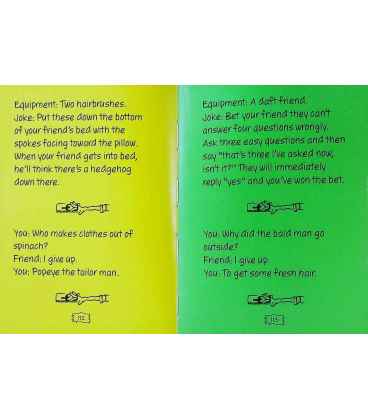 Equipment: Two hairbrushes.
Joke: Put these down the bottom
of your friend's bed with the
spokes facing toward the pillow.
When your friend gets into bed,
he'll think there's a hedgehog
down there.
You: Who makes clothes out of
spinach?
Friend: I give up.
You: Popeye the tailor man.
Equipment: A daft friend.
Joke: Bet your friend they can't
answer four questions wrongly.
Ask three easy questions and then
say "that's three I've asked now,
isn't it?" They will immediately
reply "yes" and you've won the bet.
You: Why did the bald man go
outside?
Friend: I give up.
You: To get some fresh hair.